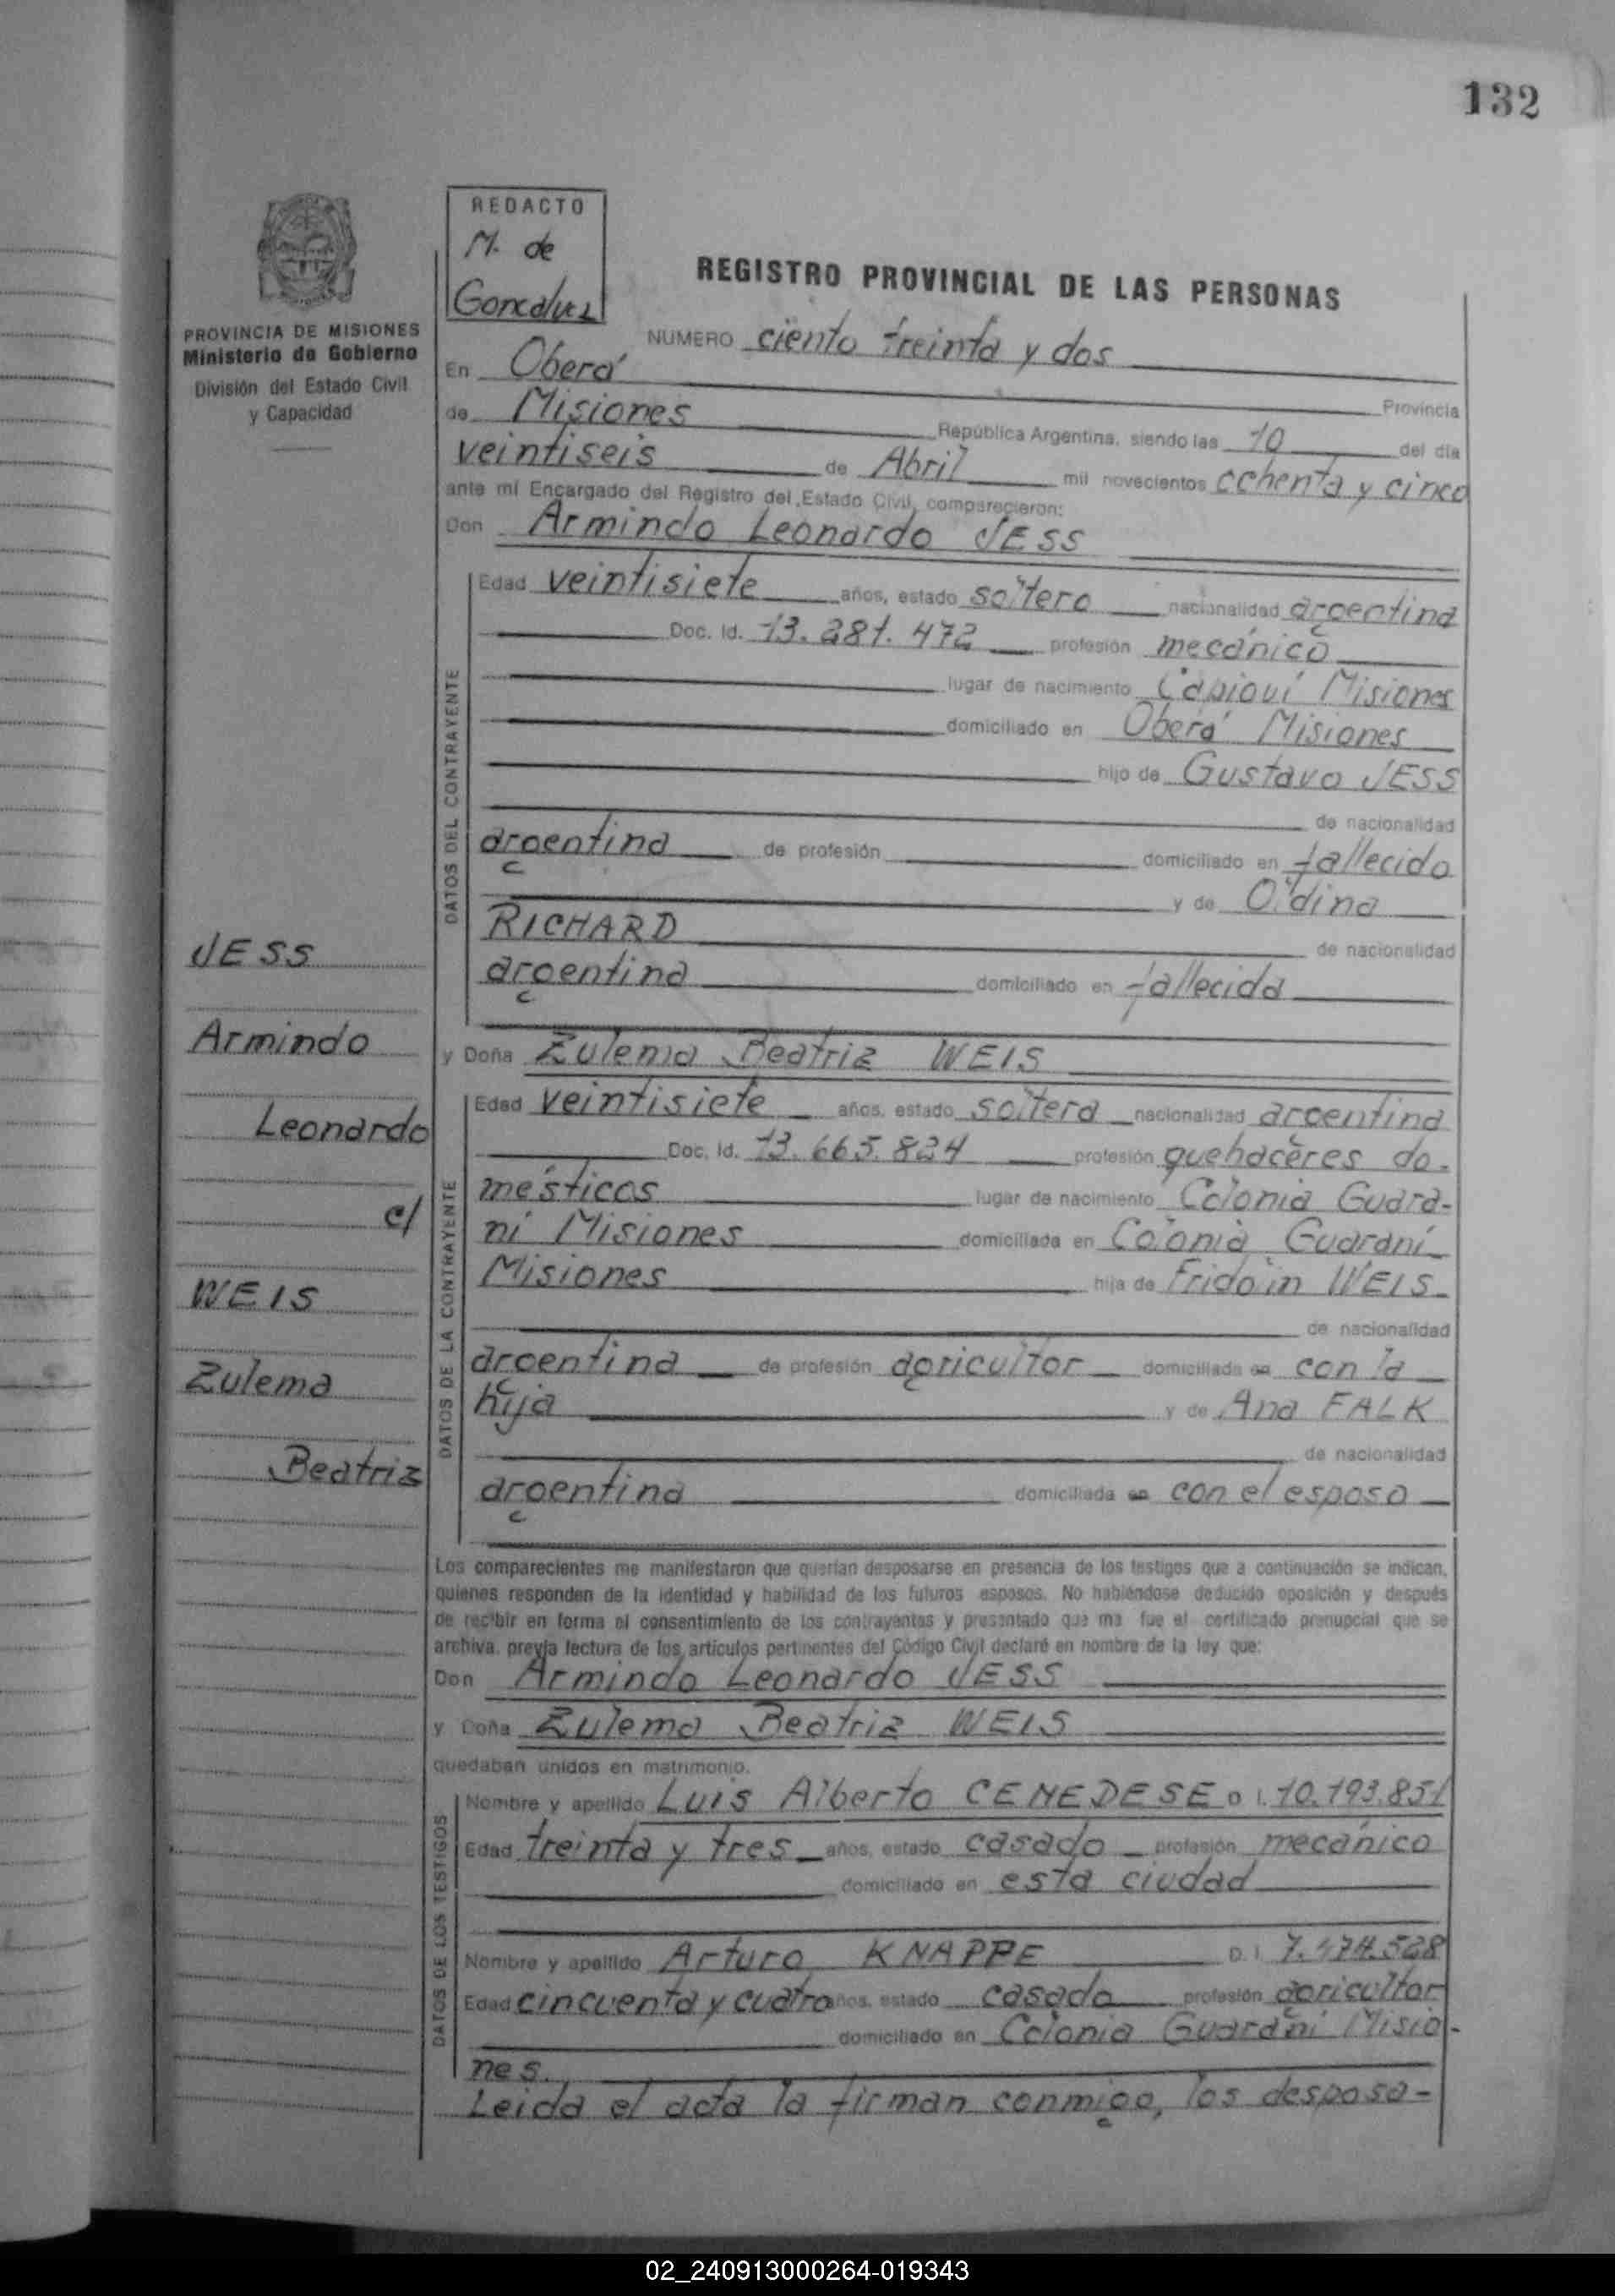 132
REDACTO
M. de
Goncalvez
PROVINCIA DE MISIONES
Ministerio de Gobierno
División del Estado Civil
y Capacidad
REGISTRO PROVINCIAL DE LAS PERSONAS
NUMERO ciento treinta y dos
En Oberá
Provincia
de Misiones República Argentina, siendo las 10 del día
veintiseis de Abril mil novecientos ochenta y cinco
ante mí Encargado del Registro del Estado Civil, comparecieron:
Don Armindo Leonardo JESS
DATOS DEL CONTRAYENTE
Edad veintisiete años, estado soltero nacionalidad argentina
Doc. Id. 13.281.472 profesión mecánico
lugar de nacimiento Capioví Misiones
domiciliado en Oberá Misiones
hijo de Gustavo JESS
de nacionalidad
argentina de profesión domiciliado en fallecido
y de Oldina
RICHARD
de nacionalidad
argentina domiciliado en fallecida
y Doña Zulema Beatriz WEIS
DATOS DE LA CONTRAYENTE
Edad veintisiete años, estado soltera nacionalidad argentina
Doc. Id. 13.665.824 profesión quehaceres do-
mésticos lugar de nacimiento Colonia Guara-
ní Misiones domiciliada en Colonia Guaraní
Misiones hija de Fridolin WEIS
de nacionalidad
argentina de profesión agricultor domiciliado en con la
hija y de Ana FALK
de nacionalidad
argentina domiciliada en con el esposo
JESS
Armindo
Leonardo
c/
WEIS
Zulema
Beatriz
Los comparecientes me manifestaron que querían desposarse en presencia de los testigos que a continuación se indican,
quienes responden de la identidad y habilidad de los futuros esposos. No habiéndose deducido oposición y después
de recibir en forma el consentimiento de los contrayentes y presentado que me fue el certificado prenupcial que se
archiva, previa lectura de los artículos pertinentes del Código Civil declaré en nombre de la ley que:
Don Armindo Leonardo JESS
y Doña Zulema Beatriz WEIS
quedaban unidos en matrimonio.
DATOS DE LOS TESTIGOS
Nombre y apellido Luis Alberto CENEDESE D. I. 10.193.851
Edad treinta y tres años, estado casado profesión mecánico
domiciliado en esta ciudad
Nombre y apellido Arturo KNAPPE D. I.
Edad cincuenta y cuatro años, estado casado profesión agricultor
domiciliado en Colonia Guaraní Misio-
nes.
Leida el acta la firman conmigo, los desposa-
02_240913000264-019343